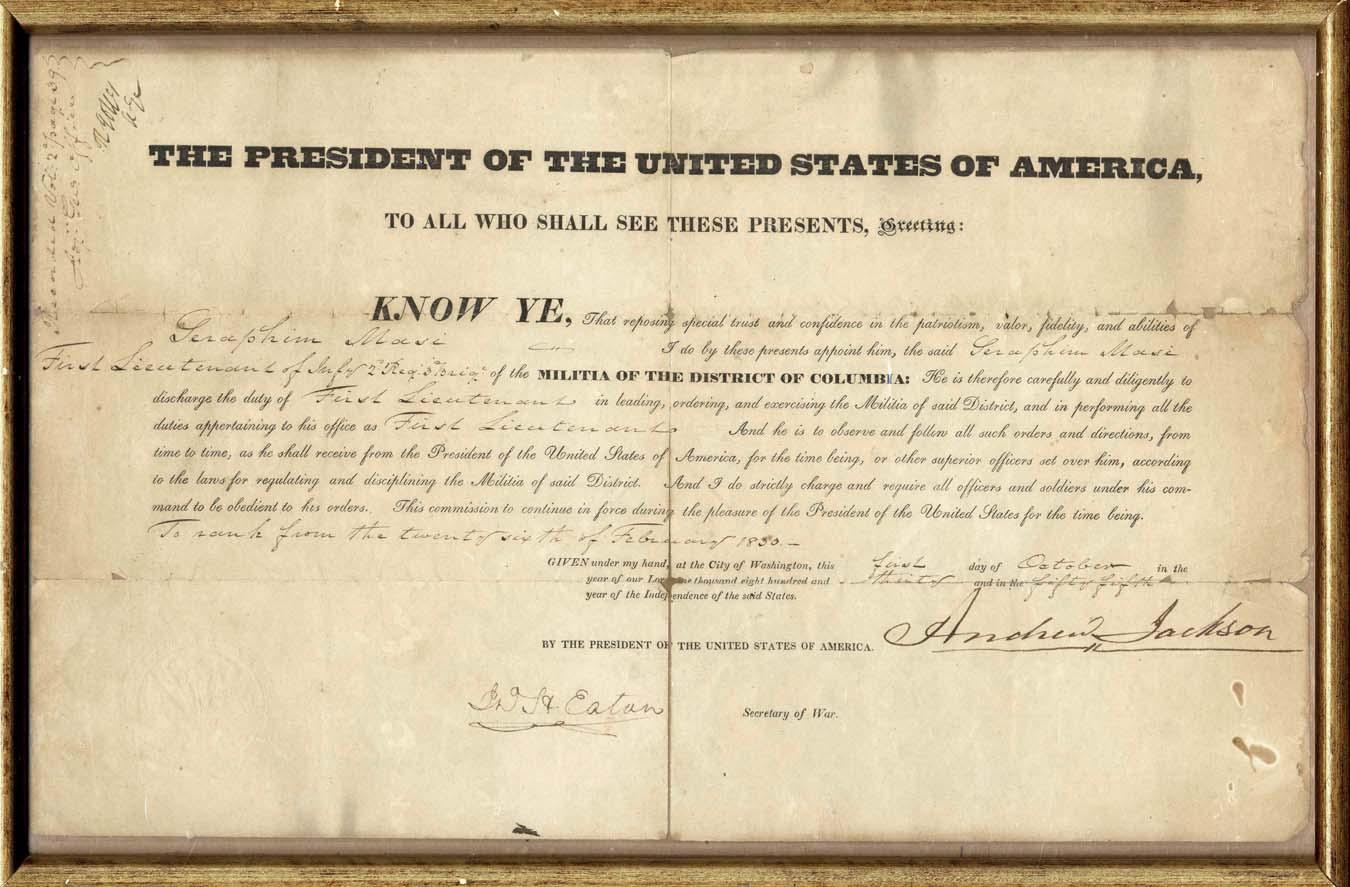 Recorded Vol: 2 page 393
THE PRESIDENT OF THE UNITED STATES OF AMERICA,
TO ALL WHO SHALL SEE THESE PRESENTS, Greeting:
KNOW YE, That reposing special trust and confidence in the patriotism, valor, fidelity, and abilities of
Seraphim Masi I do by these presents appoint him, the said Seraphim Masi
First Lieutenant of Infy 2d Reg. Brig. of the MILITIA OF THE DISTRICT OF COLUMBIA: He is therefore carefully and diligently to
discharge the duty of First Lieutenant in leading, ordering, and exercising the Militia of said District, and in performing all the
duties appertaining to his office as First Lieutenant And he is to observe and follow all such orders and directions, from
time to time, as he shall receive from the President of the United States of America, for the time being, or other superior officers set over him, according
to the laws for regulating and disciplining the Militia of said District. And I do strictly charge and require all officers and soldiers under his com-
mand to be obedient to his orders. This commission to continue in force during the pleasure of the President of the United States for the time being.
To rank from the twenty sixth of February 1830.—
GIVEN under my hand, at the City of Washington, this first day of October in the
year of our Lord one thousand eight hundred and thirty and in the fifty fifth
year of the Independence of the said States.
Andrew Jackson
BY THE PRESIDENT OF THE UNITED STATES OF AMERICA.
Jno H. Eaton
Secretary of War.